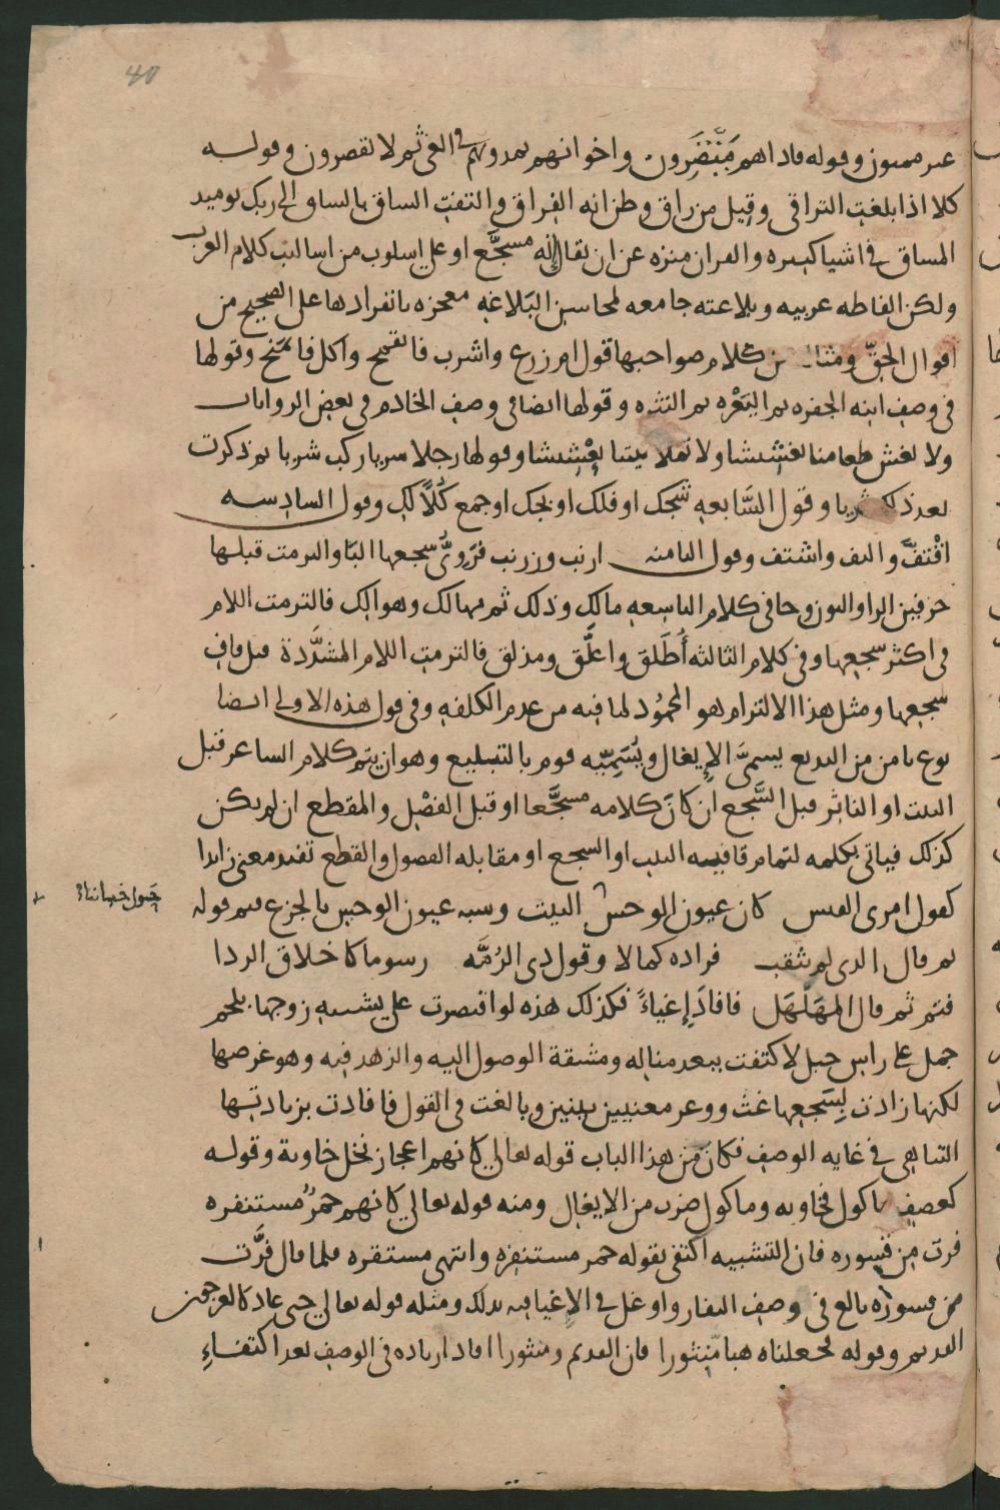 40
غير ممنون وقوله فاذاهم مبصرون واخوانهم يمدونهم في الغي ثم لا يقصرون وقوله
كلا اذا بلغت التراقي وقيل من راق وظن انه الفراق والتفت الساق بالساق الى ربك يوميذ
المساق في اشيا كثيره والقران منزه عن ان يقال انه مسجع او على اسلوب من اساليب كلام العرب
ولكن الفاظه عربيه وبلاغته جامعه لمحاسن البلاغه معجزه بانفرادها على الصحيح من
اقوال الحق ومثال من كلام صواحبها قول ام زرع واشرب فاتقمح واكل فاتمنح وقولها
في وصف ابنه الجفره ثم اليعره ثم النثره وقولها ايضا في وصف الخادم في بعض الروايات
ولا تغش طعامنا تغشيشا ولا تملا بيتنا تعشيشا وقولها رجلا سريا ركب شريا ثم ذكرت
بعد ذلك ثريا وقول السابعه شجك او فلك او بجك او جمع كلا لك وقول السادسه
اقتف والتف واشتف وقول الثامنه ارنب وزرنب فروي سجعها البا والتزمت قبلها
حرفين الرا والنون وجا في كلام التاسعه مالك وذلك ثم مهالك وهوالك فالتزمت اللام
في اكثر سجعها وفي كلام الثالثه أطلق واعلق ومذلق فالتزمت اللام المشددة قبل قاف
سجعها ومثل هذا الالتزام هو المحمود لما فيه من عدم الكلفه وفي قول هذه الاولى ايضا
نوع ثامن من البديع يسمى الإيغال ويسميه قوم بالتبليغ وهو ان يتم كلام الشاعر قبل
البيت او الناثر قبل السجع ان كان كلامه مسجعا او قبل الفصل والمقطع ان لم يكن
كذلك فياتي بكلمه لتمام قافيه البيت او السجع او مقابله الفصول والقطع تفيد معنى زايدا
كقول امرى القيس كان عيون الوحش البيت وشبه عيون الوحش بالجزع فتم قوله
حول خبائنا
ثم قال الذي لم يثقب فزاده كمالا وقول ذي الرمه رسوما كاخلاق الردا
فتم ثم قال المهلهل فافاد إغياءً فكذلك هذه لو اقتصرت على تشبيه زوجها بلحم
جمل على راس جبل لاكتفت ببعد مناله ومشقة الوصول اليه والزهد فيه وهو غرضها
لكنها زادت لسجعها غث ووعر معنيين بينين وبالغت في القول فافادت بزيادتها
التناهي في غايه الوصف فكان من هذا الباب قوله تعالى كانهم اعجاز نخل خاوية وقوله
كعصف ماكول فخاويه وماكول ضرب من الايغال ومنه قوله تعالى كانهم حمر مستنفره
فرت من قسوره فان التشبيه اكتفى بقوله حمر مستنفره وانتهى مستقره فلما قال فرت
من قسورة بالغ في وصف النفار واوغل في الإغيا فيه بذلك ومثله قوله تعالى حتى عاد كالعرجون
القديم وقوله فجعلناه هبا منثورا فان القديم ومنثورا افادا زياده في الوصف بعد اكتفاءِ